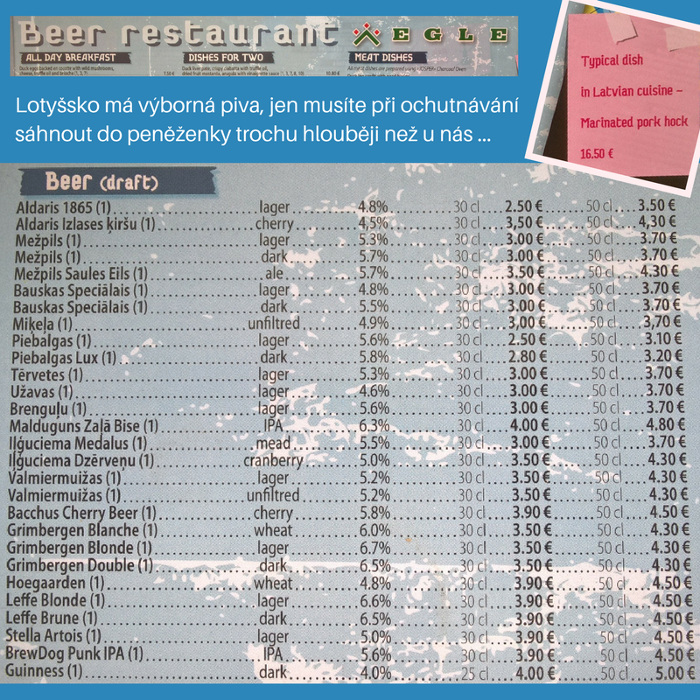 Beer restaurant EGLE
ALL DAY BREAKFAST DISHES FOR TWO MEAT DISHES
Lotyšsko má výborná piva, jen musíte při ochutnávání
sáhnout do peněženky trochu hlouběji než u nás ...
Typical dish
in Latvian cuisine –
Marinated pork hock
16.50 €
Beer (draft)
Aldaris 1865 (1) lager 4.8% 30 cl 2.50 € 50 cl 3.50 €
Aldaris Izlases ķiršu (1) cherry 4,5% 30 cl 3,50 € 50 cl 4,30 €
Mežpils (1) lager 5.3% 30 cl 3.00 € 50 cl 3.70 €
Mežpils (1) dark 5.7% 30 cl 3.00 € 50 cl 3.70 €
Mežpils Saules Eils (1) ale 5.7% 30 cl 3.50 € 50 cl 4.30 €
Bauskas Speciālais (1) lager 4.8% 30 cl 3.00 € 50 cl 3.70 €
Bauskas Speciālais (1) dark 5.5% 30 cl 3.00 € 50 cl 3.70 €
Miķeļa (1) unfiltred 4.9% 30 cl 3,00 € 50 cl 3,70 €
Piebalgas (1) lager 5.6% 30 cl 2.50 € 50 cl 3.10 €
Piebalgas Lux (1) dark 5.8% 30 cl 2.80 € 50 cl 3.20 €
Tērvetes (1) lager 5.3% 30 cl 3.00 € 50 cl 3.70 €
Užavas (1) lager 4.6% 30 cl 3.00 € 50 cl 3.70 €
Brenguļu (1) lager 5.6% 30 cl 3.00 € 50 cl 3.70 €
Malduguns Zaļā Bise (1) IPA 6.3% 30 cl 4.00 € 50 cl 4.80 €
Iļģuciema Medalus (1) mead 5.5% 30 cl 3.00 € 50 cl 3.70 €
Iļģuciema Dzērveņu (1) cranberry 5.0% 30 cl 3.50 € 50 cl 4.30 €
Valmiermuižas (1) lager 5.2% 30 cl 3.50 € 50 cl 4.30 €
Valmiermuižas (1) unfiltred 5.2% 30 cl 3.50 € 50 cl 4.30 €
Bacchus Cherry Beer (1) cherry 5.8% 30 cl 3.90 € 50 cl 4.50 €
Grimbergen Blanche (1) wheat 6.0% 30 cl 3.50 € 50 cl 4.30 €
Grimbergen Blonde (1) lager 6.7% 30 cl 3.50 € 50 cl 4.30 €
Grimbergen Double (1) dark 6.5% 30 cl 3.50 € 50 cl 4.30 €
Hoegaarden (1) wheat 4.8% 30 cl 3.90 € 50 cl 4.50 €
Leffe Blonde (1) lager 6.6% 30 cl 3.90 € 50 cl 4.50 €
Leffe Brune (1) dark 6.5% 30 cl 3.90 € 50 cl 4.50 €
Stella Artois (1) lager 5.0% 30 cl 3.90 € 50 cl 4.50 €
BrewDog Punk IPA (1) IPA 5.6% 30 cl 3.90 € 50 cl 4.50 €
Guinness (1) dark 4.0% 25 cl 4.00 € 50 cl 5.00 €